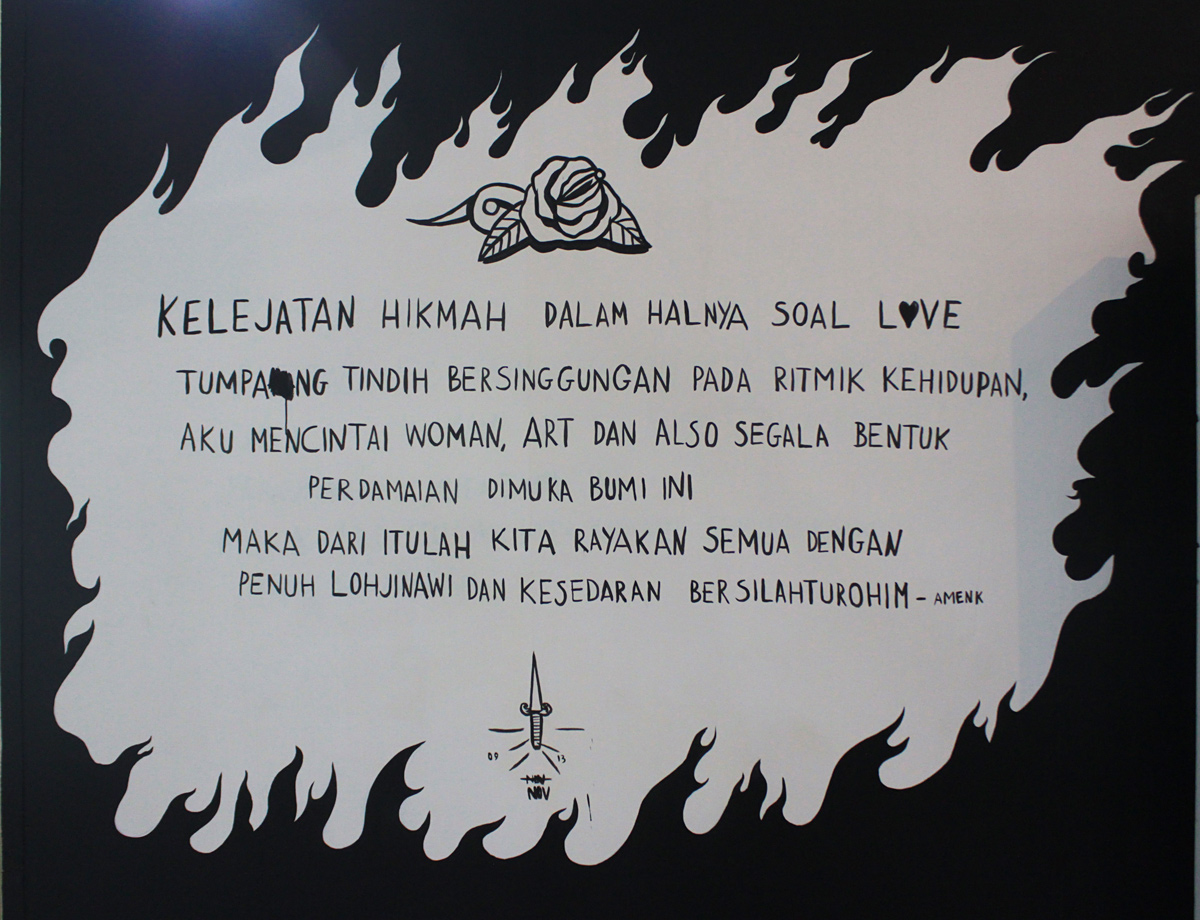 KELEJATAN HIKMAH DALAM HALNYA SOAL L♥VE
TUMPANG TINDIH BERSINGGUNGAN PADA RITMIK KEHIDUPAN,
AKU MENCINTAI WOMAN, ART DAN ALSO SEGALA BENTUK
PERDAMAIAN DIMUKA BUMI INI
MAKA DARI ITULAH KITA RAYAKAN SEMUA DENGAN
PENUH LOHJINAWI DAN KESEDARAN BERSILAHTUROHIM - AMENK
09 13
NOV